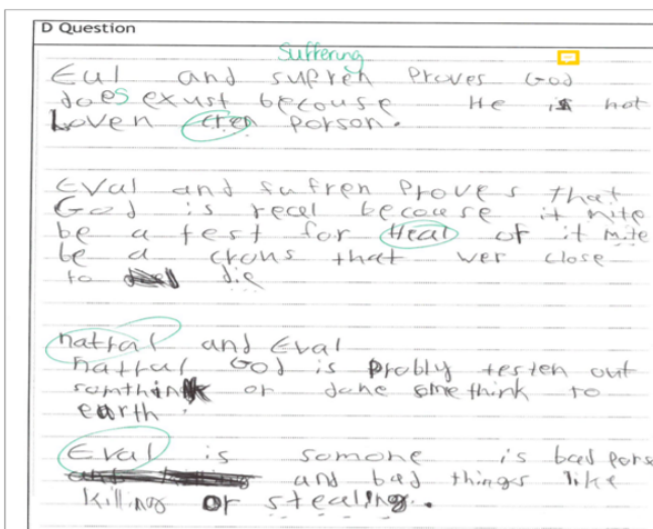 D Question
Suffering
Eul and supren Proves God
does exust becouse He is not
Loven person.
Eval and sufren Proves that
God is recel becouse it mite
be a test for Heal of it mite
be a crons that wer close
to die
natral and Eval
natral God is Probly testen out
somthink or done somethink to
earth.
Eval is somone is bad Perso
and bad things like
killing or stealing.